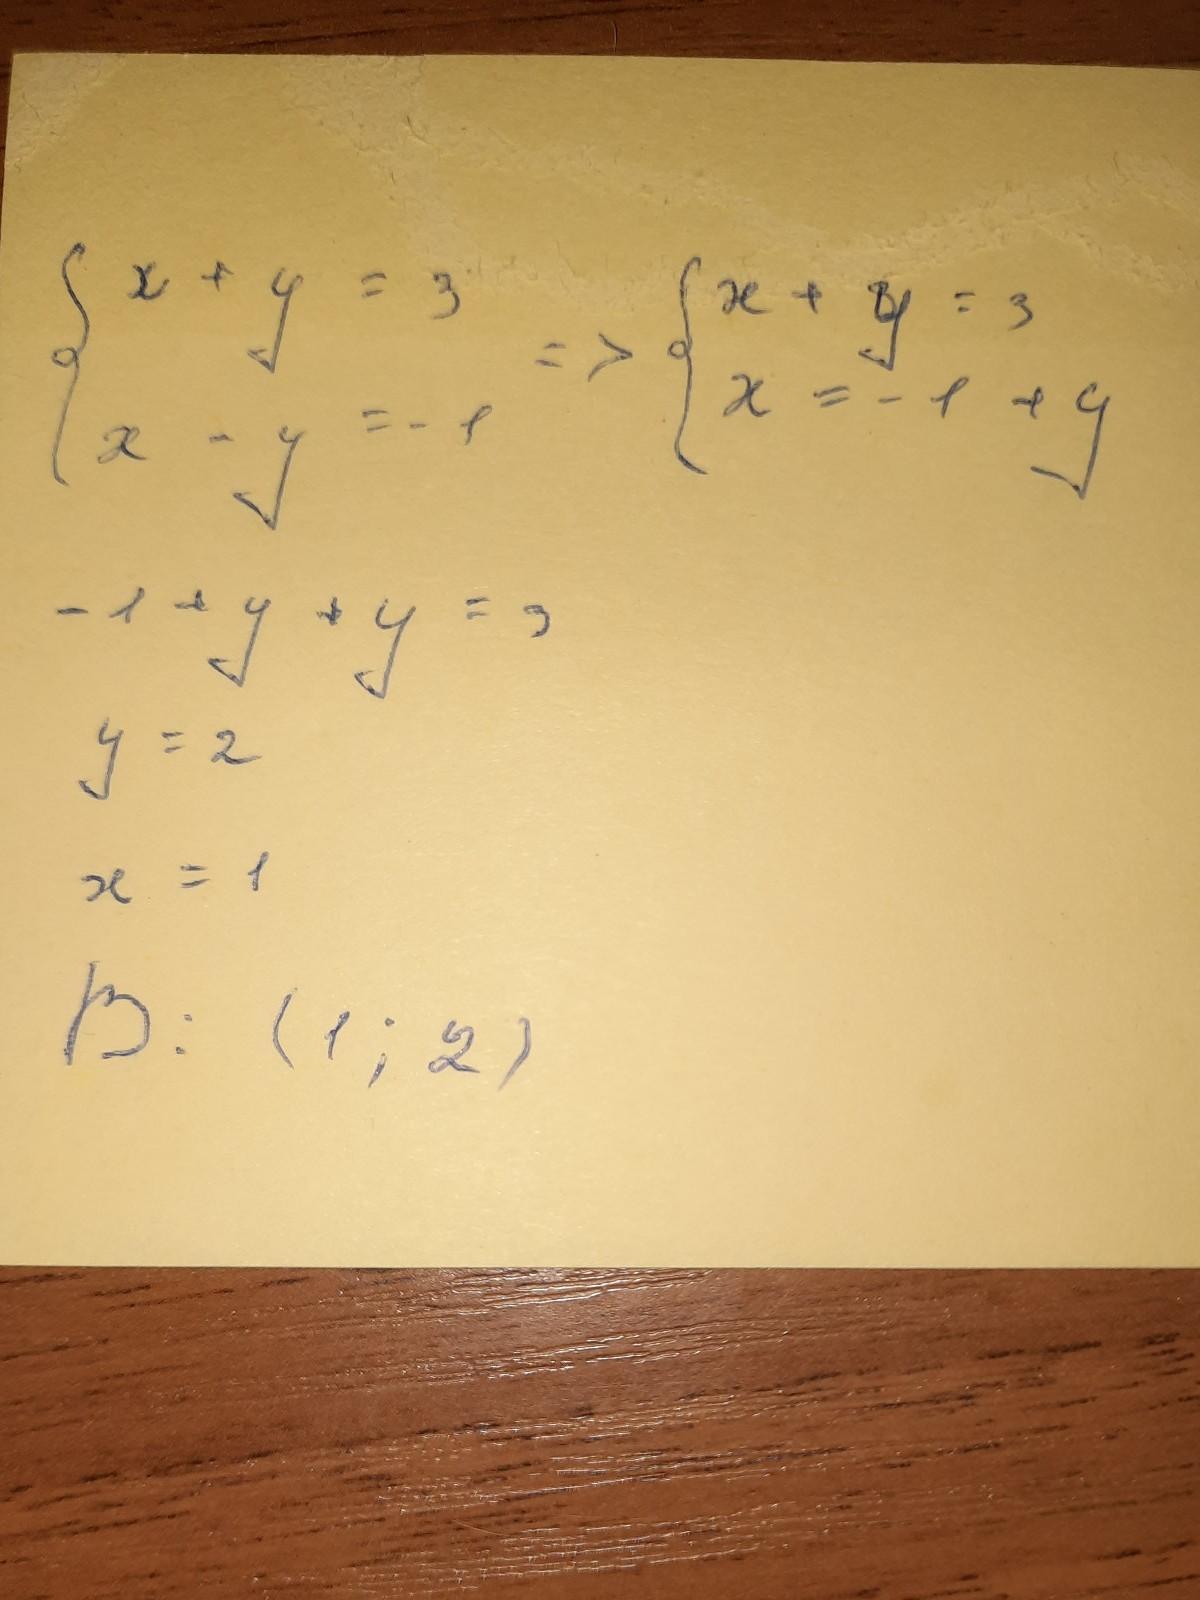 { x + y = 3 => { x + y = 3
x - y = -1 x = -1 + y
-1 + y + y = 3
y = 2
x = 1
В: (1; 2)